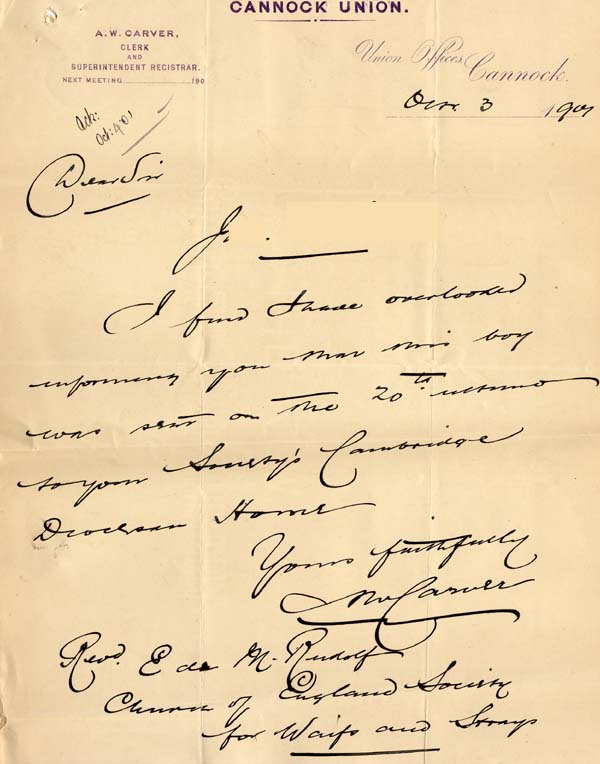 CANNOCK UNION.
A. W. CARVER,
CLERK
AND
SUPERINTENDENT REGISTRAR.
NEXT MEETING 190
Union Offices,
Cannock.
Octr. 3 1901
Ack:
Oct: 4. 01
Dear Sir
J.
I find I have overlooked
informing you that this boy
was sent on the 20th ultimo
to your Society's Cambridge
Diocesan Home
Yours faithfully
AWCarver
Revd. E de M. Rudolf
Church of England Society
for Waifs and Strays